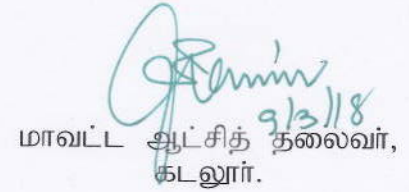 9/3/18
மாவட்ட ஆட்சித் தலைவர்,
கடலூர்.